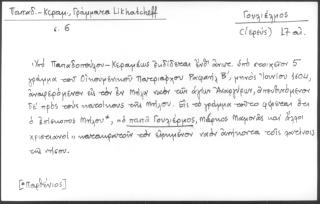 Παπαδ.-Κεραμ., Γράμματα Likhatcheff
Γουλιέλμος
σ. 6
(ἱερεύς) 17 αἰ.
Ὑπὸ Παπαδοπούλου-Κεραμέως ἐκδίδεται ἔνθ' ἄνωτ. ὑπὸ στοιχεῖον 5
γράμμα τοῦ Οἰκουμενικοῦ Πατριάρχου Ραφαὴλ Β', μηνὸς Ἰουνίου 1604,
ἀναφερόμενον εἰς τὸν ἐν Μήλῳ ναὸν τῶν ἁγίων Ἀναργύρων, ἀπευθυνόμενον
δὲ πρὸς τοὺς κατοίκους τῆς Μήλου. Εἰς τὸ γράμμα τοῦτο φέρεται ὅτι
ὁ ἐπίσκοπος Μήλου*, "ὁ παπᾶ Γουλιέρμος, Μάρκος Μαμονᾶς καὶ ἄλλοι
χριστιανοὶ" τὸν εἰρημένον ναὸν ἀνήκοντα τοῖς
τῆς νήσου.
[*Παρθένιος]